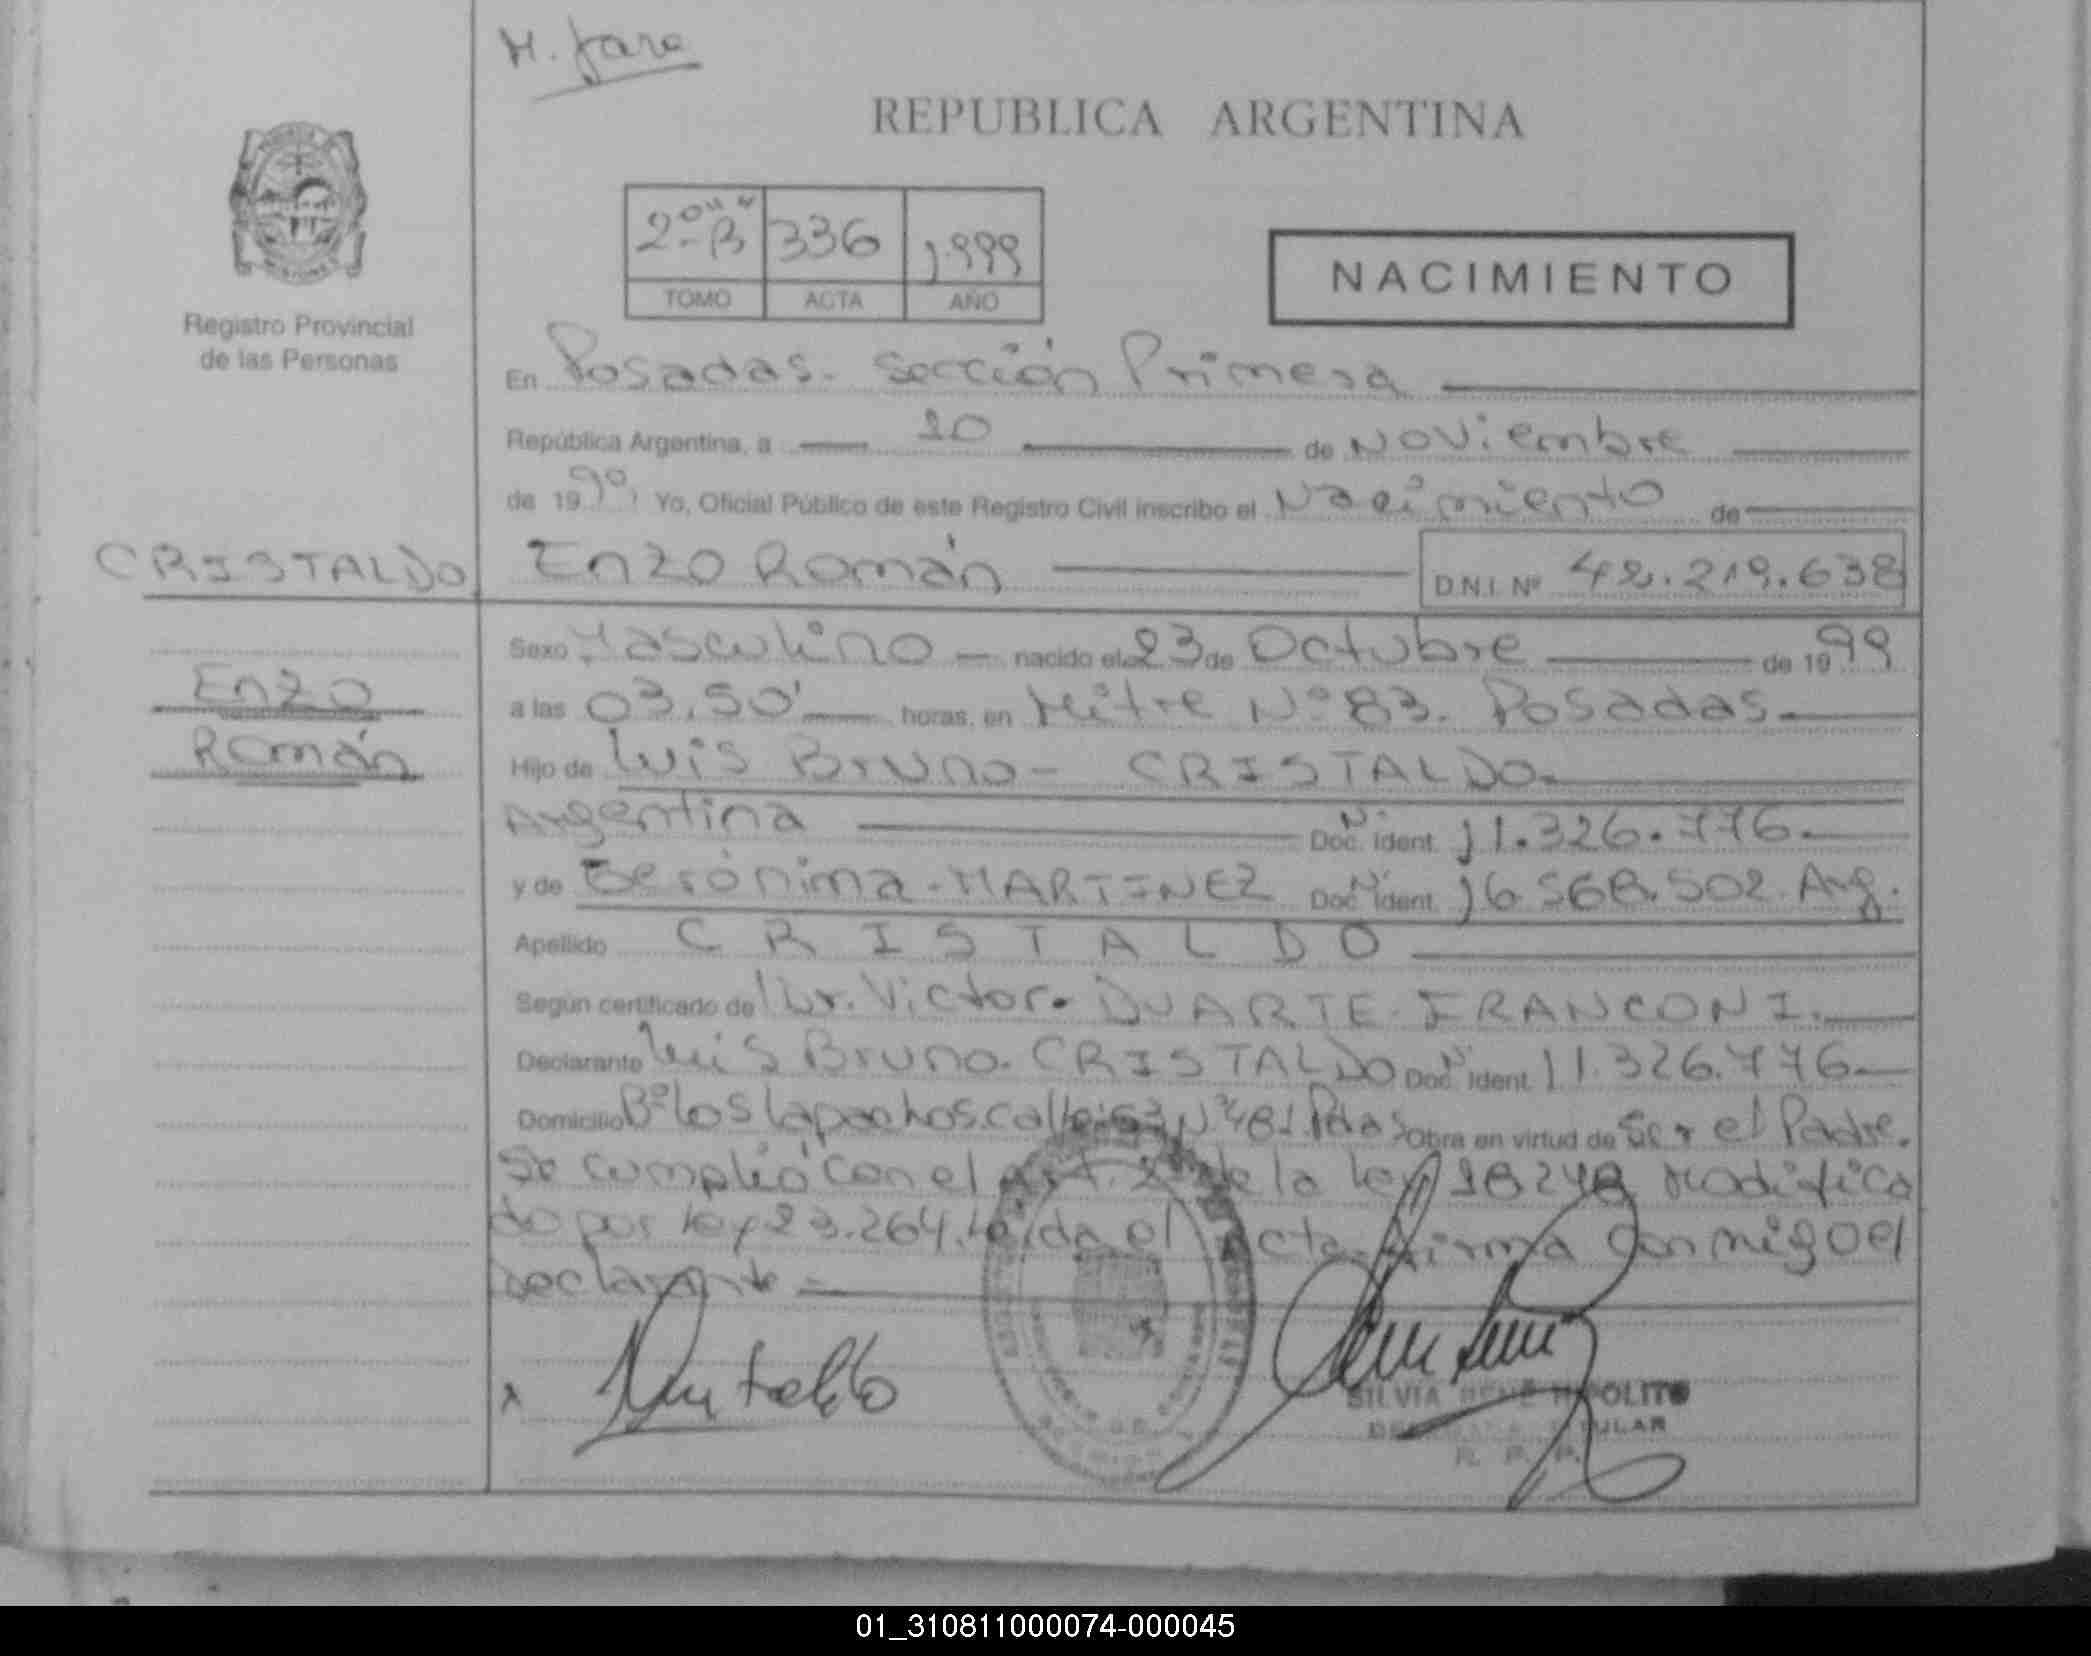 H. Jara
REPUBLICA ARGENTINA
2º "B" 336 1.999
TOMO ACTA AÑO
NACIMIENTO
Registro Provincial
de las Personas
En Posadas. Sección Primera
República Argentina, a 10 de Noviembre
de 1999 Yo, Oficial Público de este Registro Civil inscribo el Nacimiento de
CRISTALDO Enzo Román D.N.I. Nº 42.219.638
Sexo Masculino - nacido el 23 de Octubre de 1999
Enzo
a las 03,50' horas, en Mitre Nº 83. Posadas.
Román
Hijo de Luis Bruno - CRISTALDO.
Argentina Doc. Ident. 11.326.776.
y de Gerónima - MARTINEZ Doc. Ident. 16.568.502. Arg.
Apellido CRISTALDO
Según certificado de Dr. Victor. DUARTE FRANCONI.
Declarante Luis Bruno. CRISTALDO Doc. Ident. 11.326.776
Domicilio Bº los lapachos. calle Nº 481 Pdas Obra en virtud de Ser el Padre.
Se cumplió con el Art. de la ley 18248 Modifica
do por ley 23.264. Leída el Acta firma conmigo el
Declarante
SILVIA RENE HIPOLITO
TITULAR
R. P. P.
01_310811000074-000045